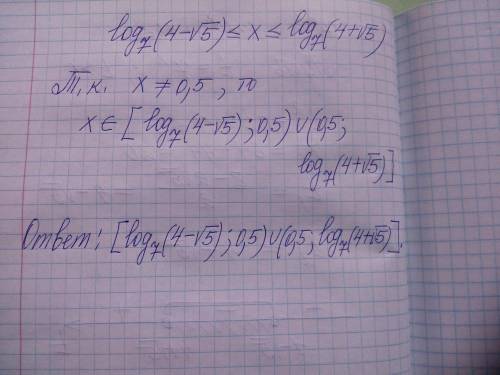 log₇(4-√5) ≤ x ≤ log₇(4+√5)
Т.к. x ≠ 0,5 , то
x ∈ [log₇(4-√5); 0,5) ∪ (0,5;
log₇(4+√5)]
Ответ: [log₇(4-√5); 0,5) ∪ (0,5; log₇(4+√5)].